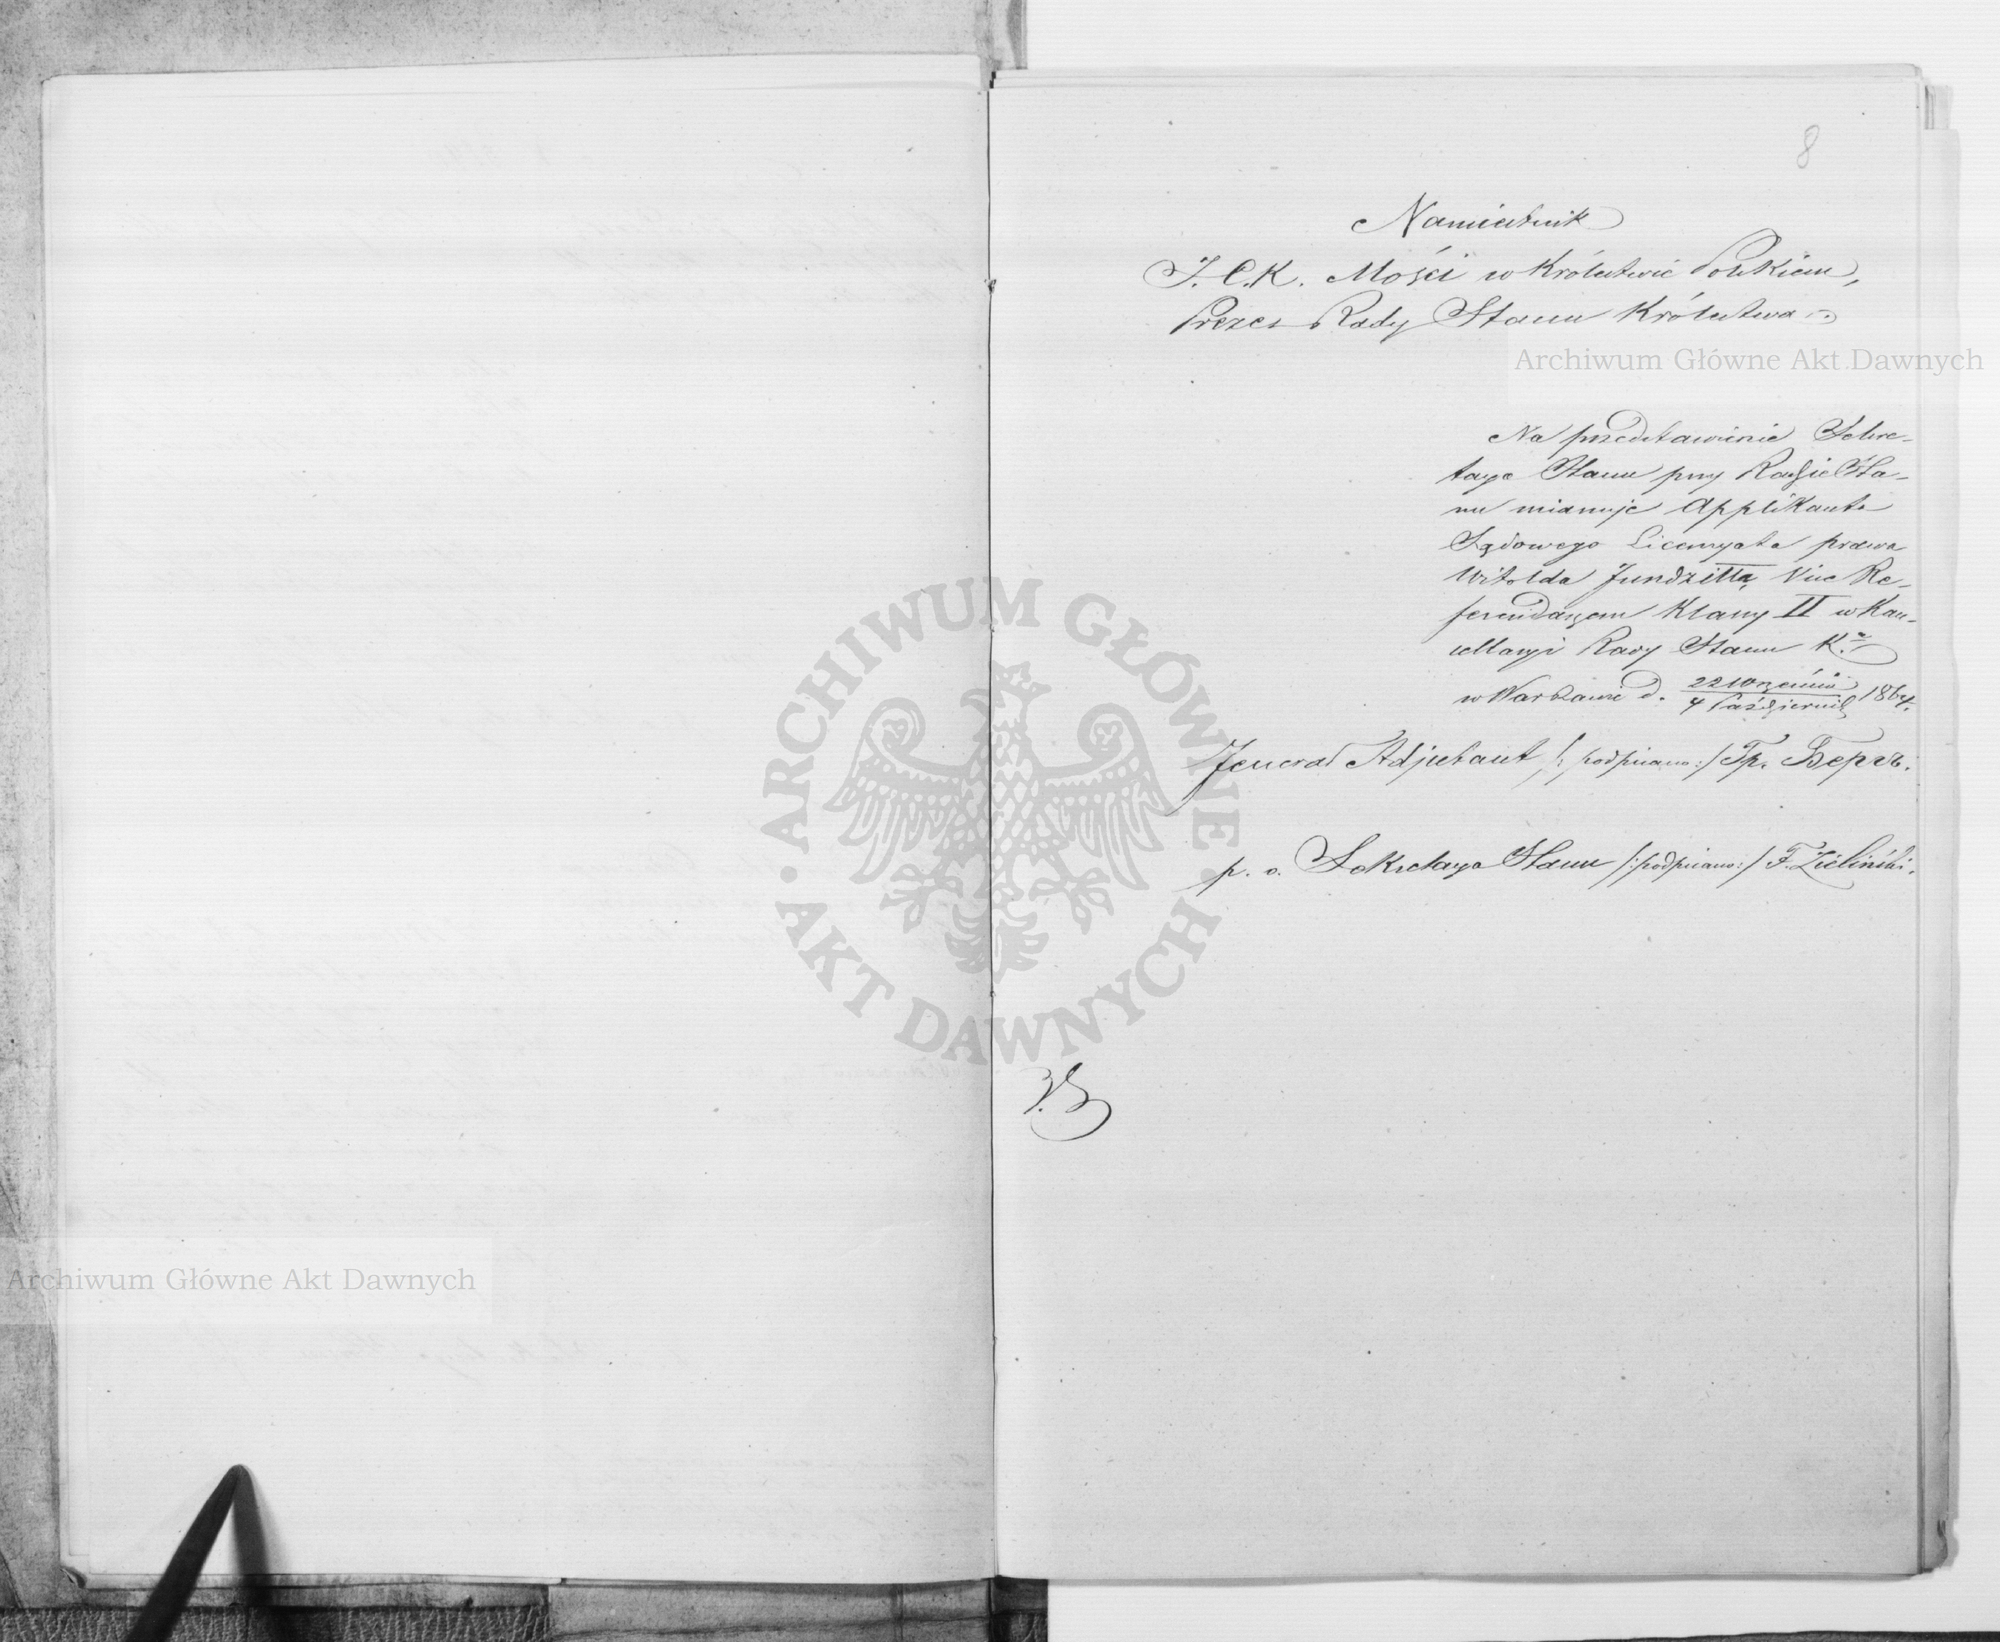 8
Namiestnik
J. C. K. Mości w Królestwie Polskiem,
Prezes Rady Stanu Królestwa
Archiwum Główne Akt Dawnych
Na przedstawienie Sekre-
tarza Stanu przy Radzie Sta-
nu mianuje Applikanta
Sądowego Licencyata prawa
Witolda Jundziłła, Vice Re-
ferendarzem Klassy II w Kan-
cellaryi Rady Stanu K.a
w Warszawie d. 22 Września / 4 Październik 1864.
Jenerał Adjutant /: podpisano :/ Гр. Бергъ.
p. o. Sekretarza Stanu /: podpisano :/ F. Zieliński.
ARCHIWUM GŁÓWNE AKT DAWNYCH
Archiwum Główne Akt Dawnych